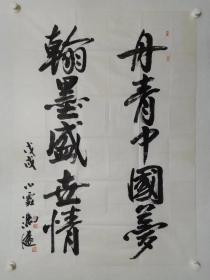 丹青中國夢
翰墨盛世情
戊戌